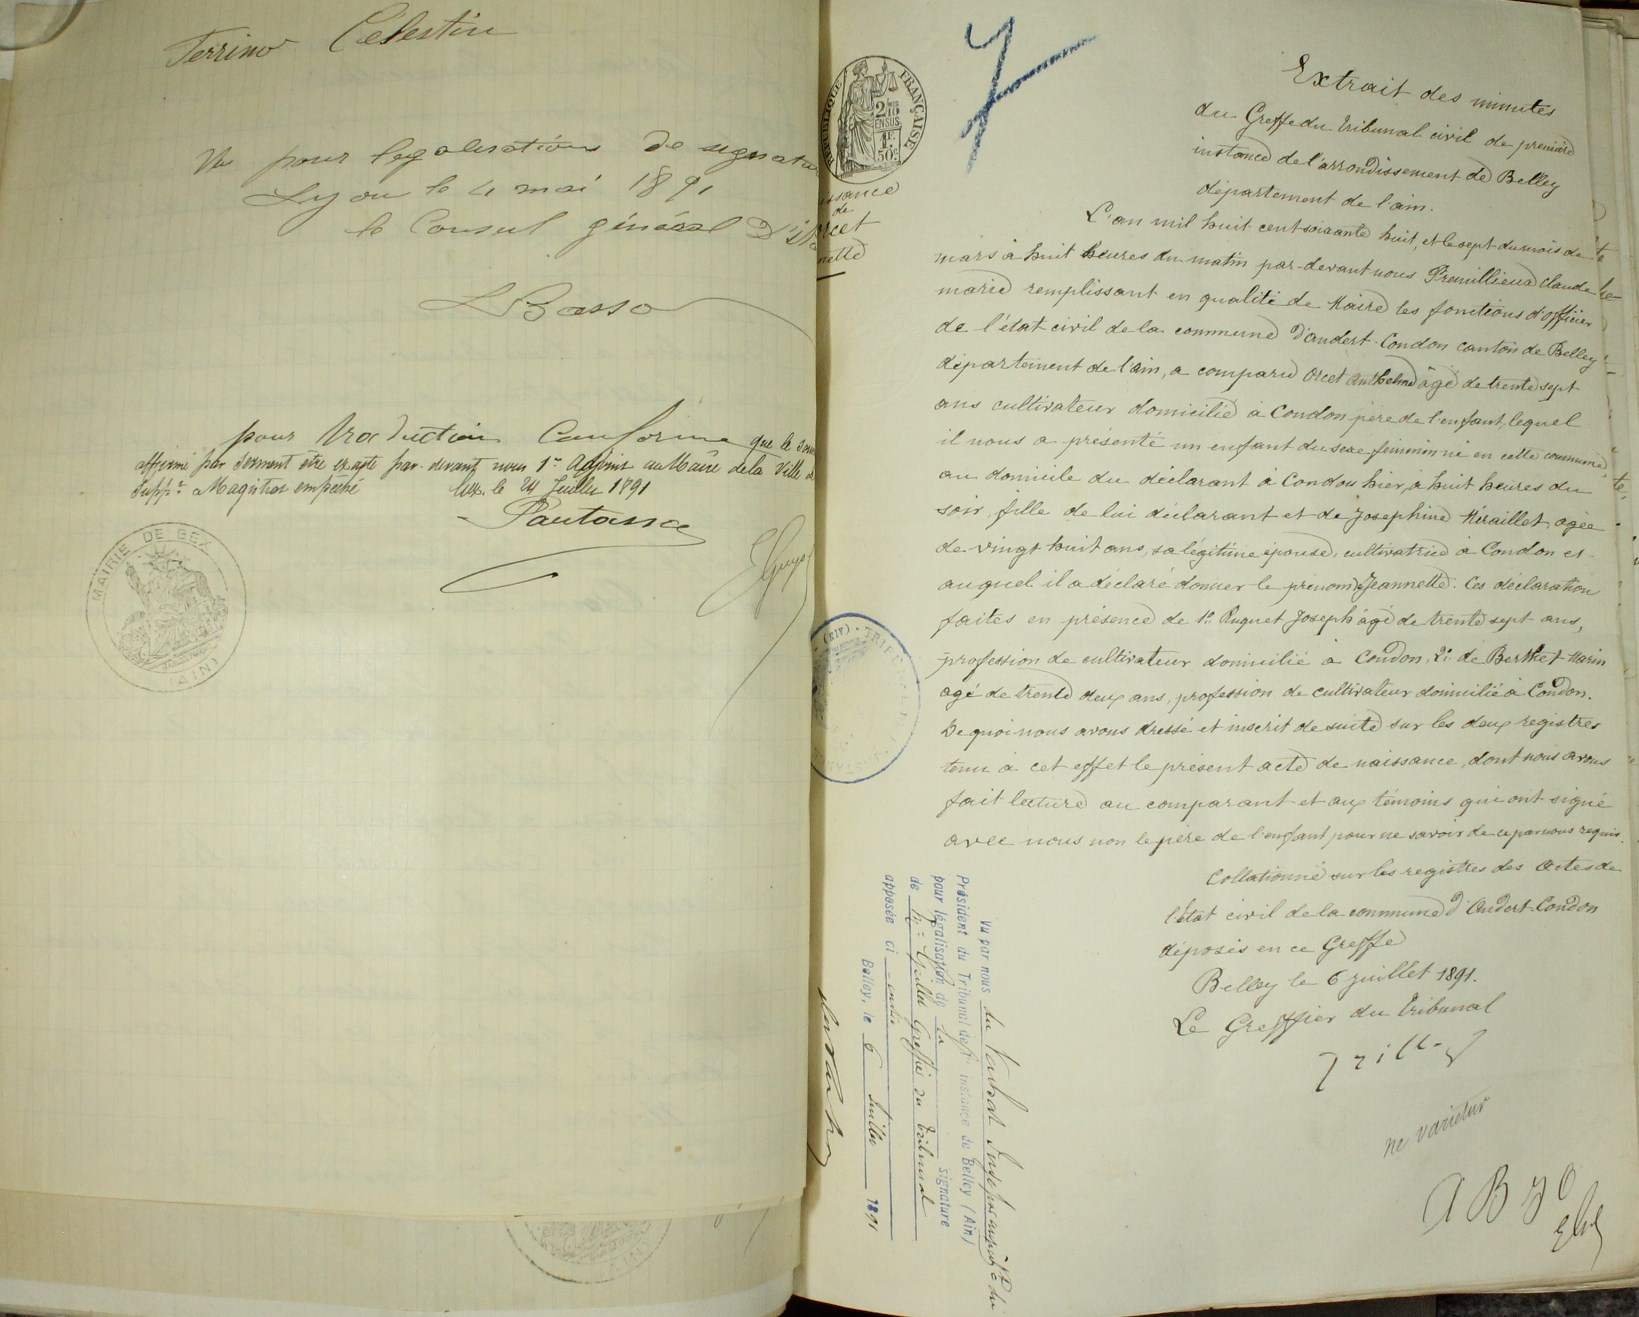 Terrino Celestin
Vu pour legalisation de signature
Lyon le 4 mai 1891
le Consul général D'
L Basso
pour traduction Conforme que le
affirmé par serment être exacte par devant nous 1er Adjoint au Maire de la Ville de
Suppt Magistrat empêché Gex, le 24 Juillet 1891
MAIRIE DE GEX
(AIN)
7
RÉPUBLIQUE FRANÇAISE
2/10
EN SUS
1F.
50c.
issance
de
rcet
nette
Extrait des minutes
du Greffe du tribunal civil de première
instance de l'arrondissement de Belley
département de l'ain.
L'an mil huit cent soixante huit, et le sept du mois de
mars à huit heures du matin par-devant nous Premillieu Claude
marie remplissant en qualité de Maire les fonctions d'officier
de l'état civil de la commune d'andert-Condon canton de Belley
département de l'ain, a comparu Orcet Anthelme âgé de trente sept
ans cultivateur domicilié à Condon père de l'enfant, lequel
il nous a présenté un enfant du sexe féminin né en cette commune
au domicile du déclarant à Condon hier, à huit heures du
soir, fille de lui déclarant et de Josephine Miraillet, agée
de vingt huit ans, sa légitime épouse, cultivatrice à Condon et
auquel il a déclaré donner le prénom de Jeannette. Ces déclaration
faites en présence de 1º Ruguet Joseph âgé de trente sept ans,
profession de cultivateur domicilié à Condon, 2º de Berthet Marin
agé de trente deux ans, profession de cultivateur domicilié à Condon.
De quoi nous avons dressé et inscrit de suite sur les deux registres
tenu à cet effet le présent acte de naissance, dont nous avons
fait lecture au comparant et aux témoins qui ont signé
avec nous non le père de l'enfant pour ne savoir de ce par nous requis.
Collationné sur les registres des actes de
l'état civil de la commune d'Andert-Condon
déposés en ce Greffe
Belley le 6 juillet 1891.
Le Greffier du Tribunal
ne varietur
Vu par nous
Président du Tribunal de 1re instance de Belley (Ain)
pour légalisation de la signature
de Mr Greffier du tribunal
apposée ci-contre
Belley, le 6 Juillet 1891